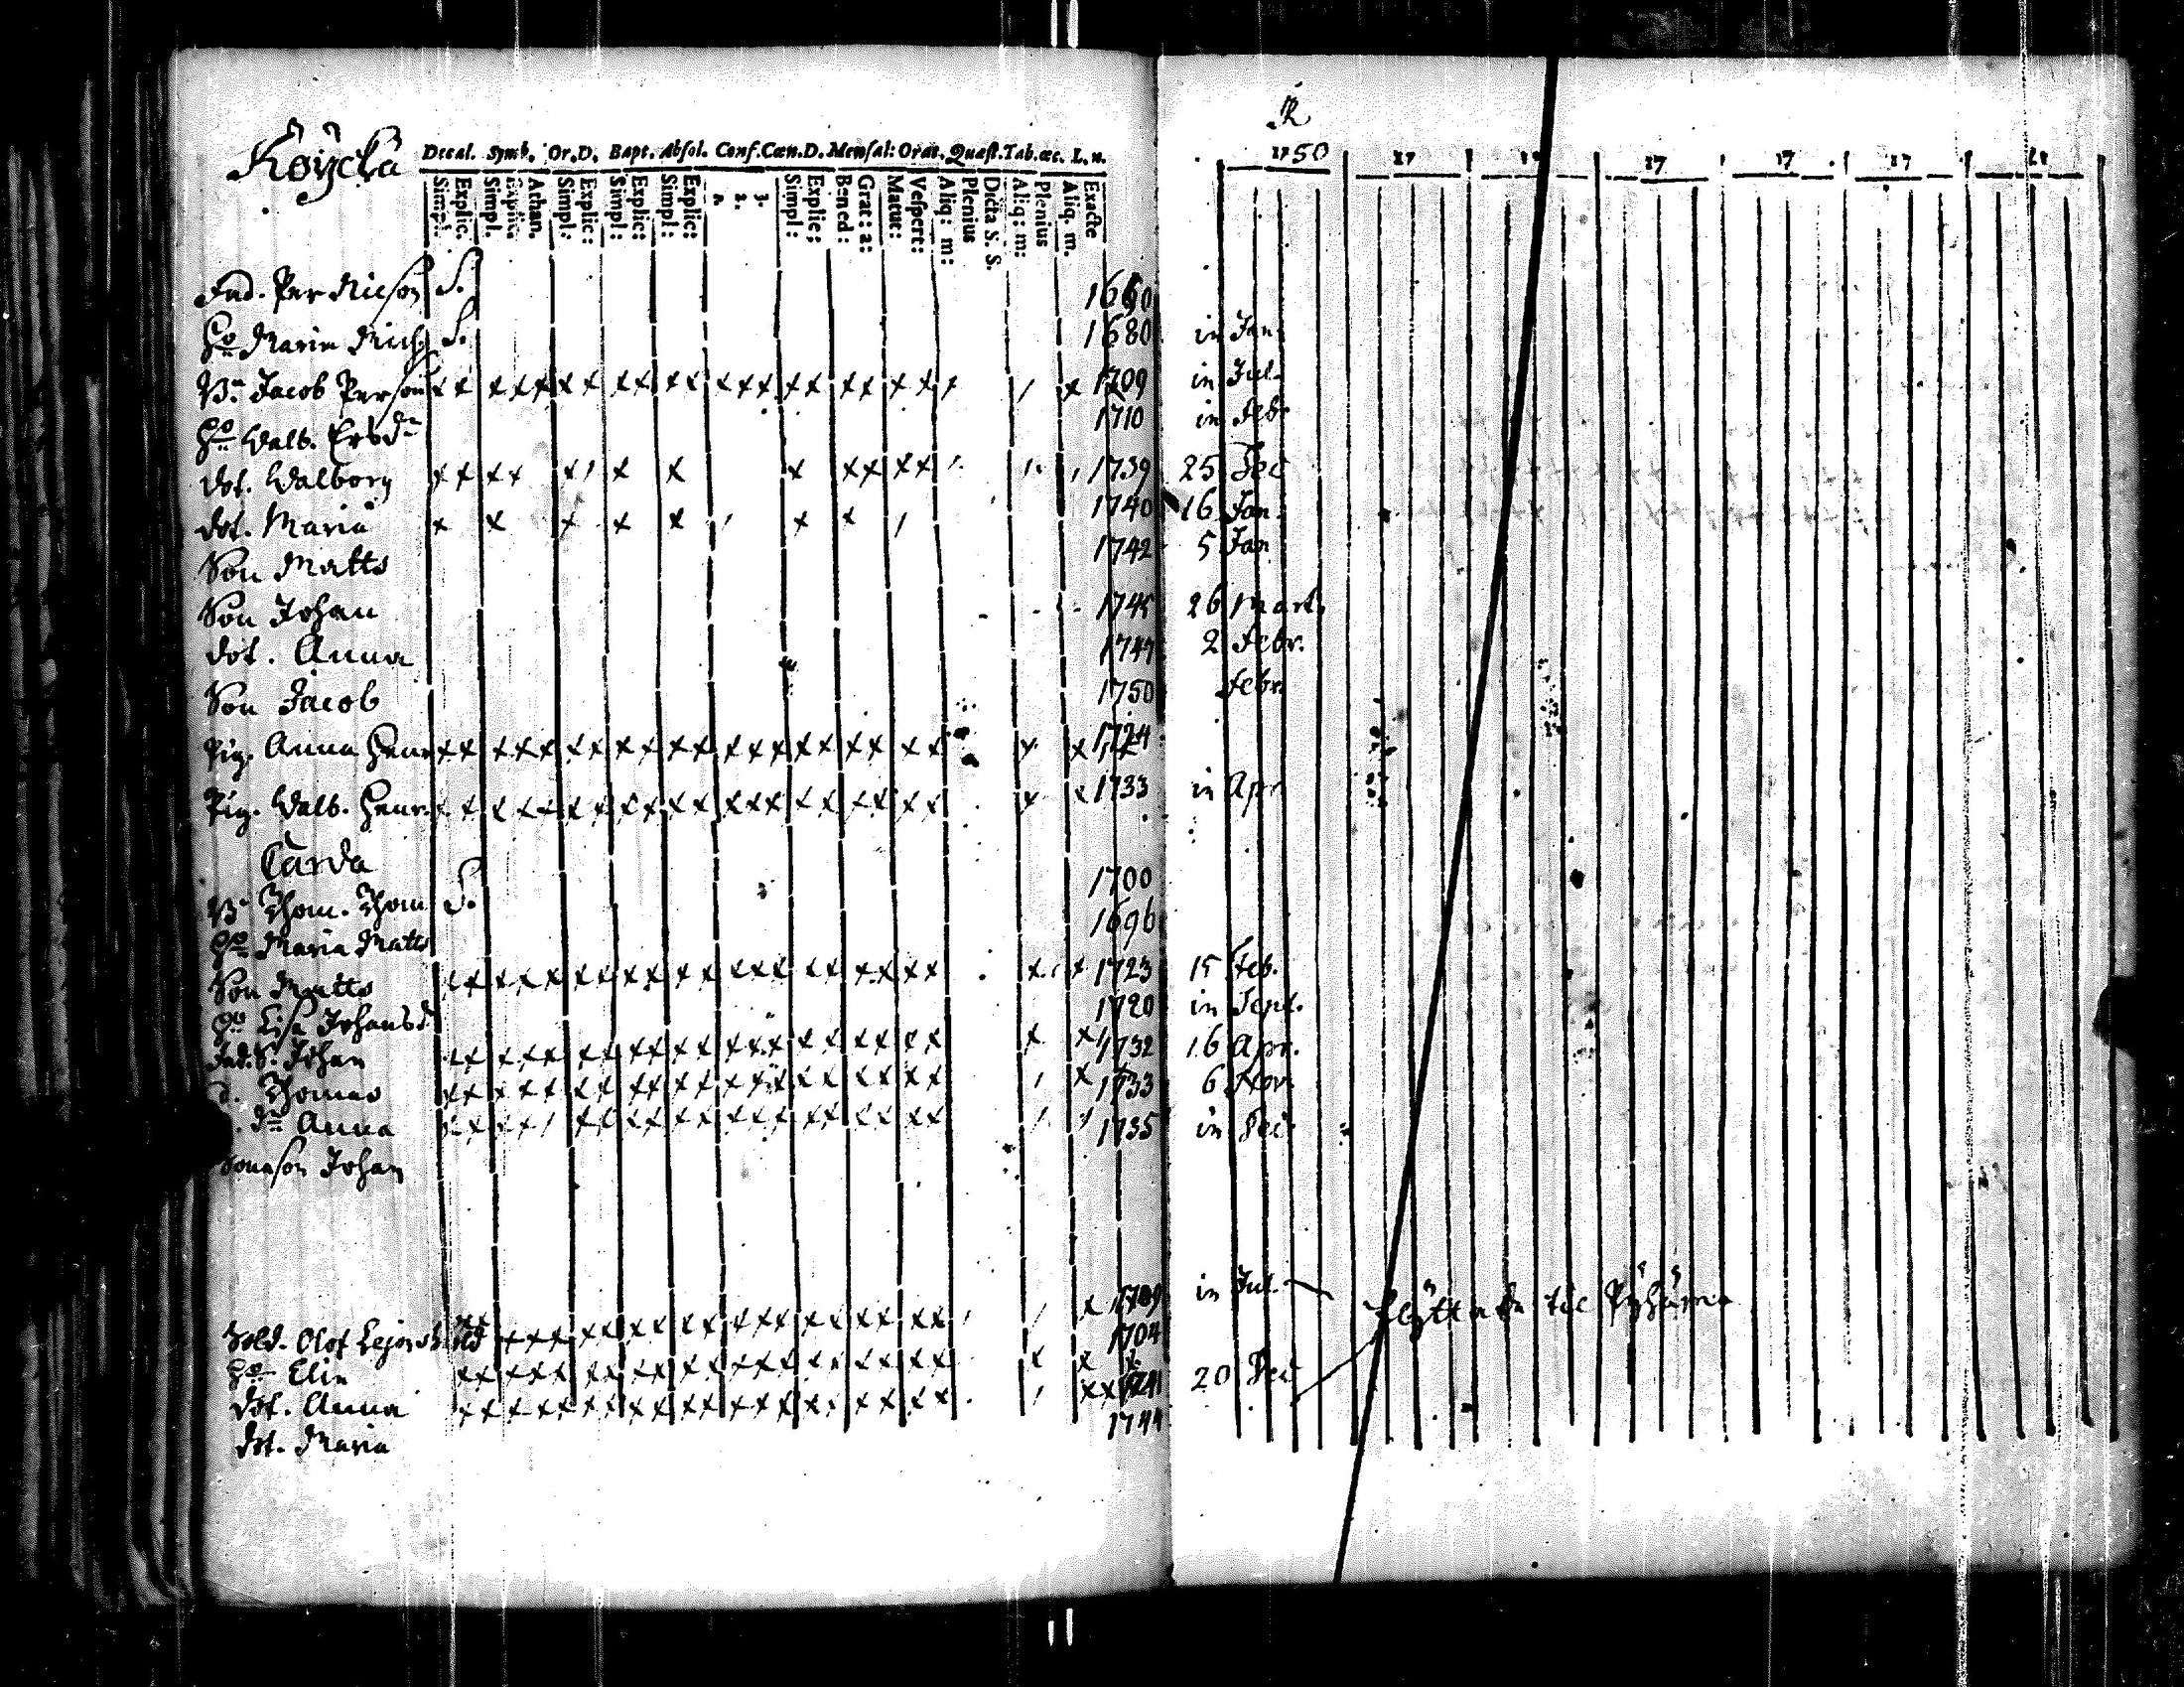 Köÿckä
Decal. Symb. Or.D. Bapt. Absol. Conf. Cœn.D. Mensal: Orat. Quæst. Tab.œc. L.n.
Simpl: Explic: Simpl. Explic: Athan. Simpl: Explic: Simpl: Explic: Simpl: Explic: 1. 2. 3. Simpl: Explic: Bened: Grat: a: Matut: Vespert: Aliq: m: Plenius Dicta S. S. Aliq: m: Plenius Aliq. m. Exacte
R
1750 17 17 17 17 17
Ind. Per Nicson S.
Ho Maria Mich S. 1680 in Jan.
Bn Jacob Person 1709 in Jul.
Ho Walb. Ersdr 1710 in Febr
dot. Walborg 1739 25 Dec
dot. Maria 1740 16 Jan.
Son Matts 1742 5 Jan
Son Johan 26 Mart.
dot. Anna 2 Febr.
Son Jacob 1750 Febr.
Pig. Anna Henr 1724
Pig. Walb. Henr. 1733 in Apr
Carda
Bn Thom. Thom S. 1700
Ho Maria Matts 1696
Son Matts 1723 15 Feb.
Ho Lisa Johansd 1720 in Sept.
Ind. S. Johan 1732 16 Apr.
d. Thomas 1733 6 Nov.
dr Anna 1735 in Dec
Sonason Johan
Sold. Olof 1709 in Jul. flÿttade til Pÿhämä
Ho Elin 1704
dot. Anna 1741 20 Dec
dot. Maria 1744